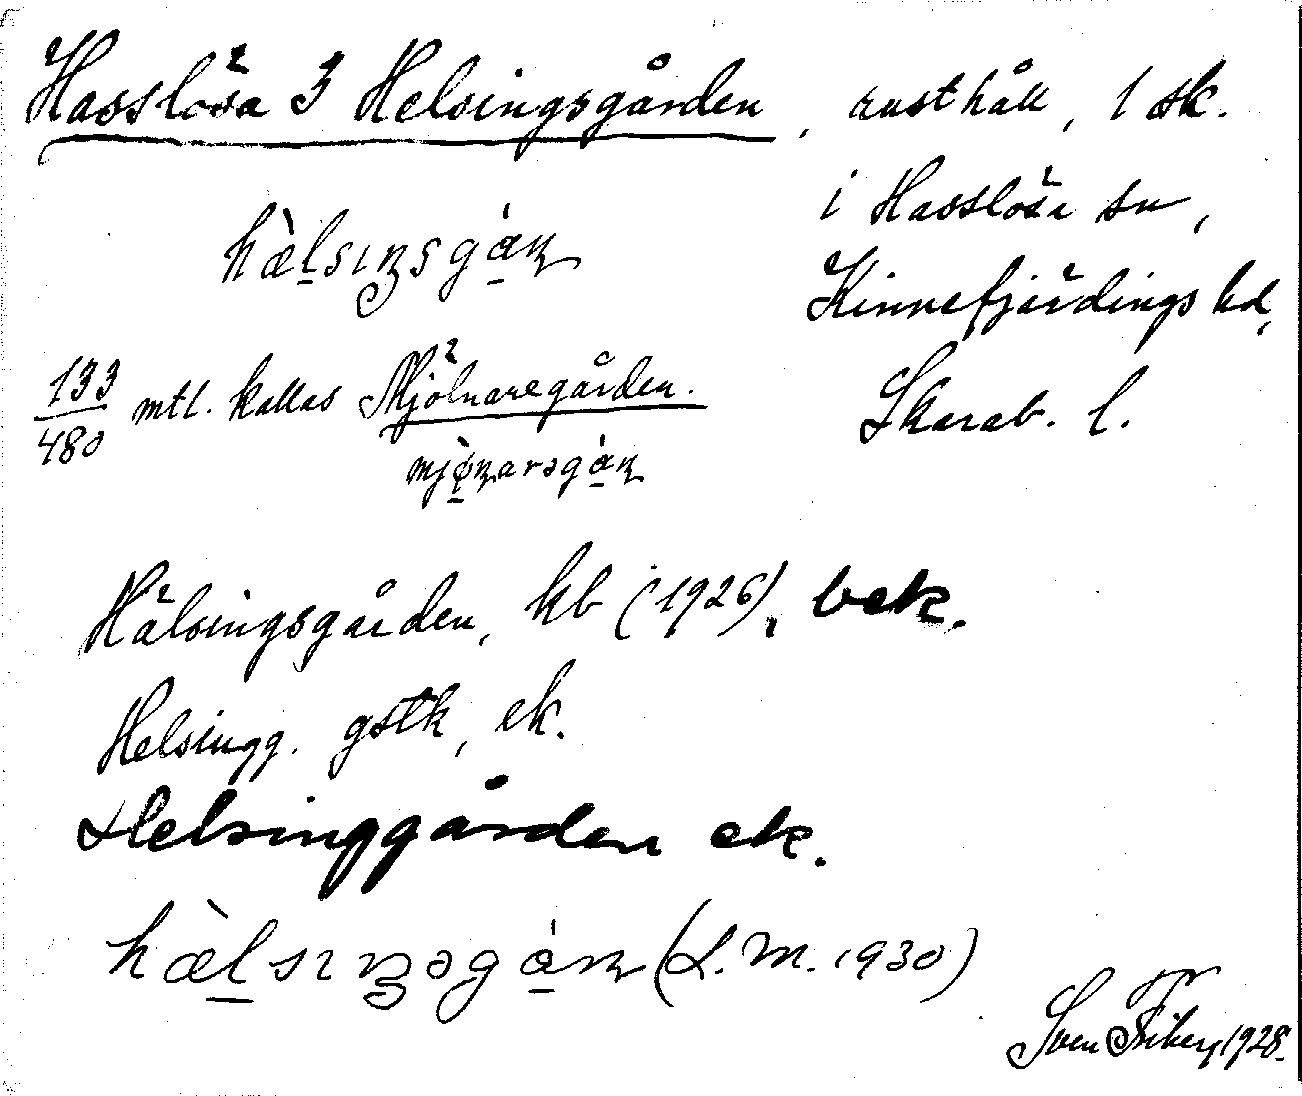 Hasslösa 3 Helsingsgården, rusthåll, 1 sk.
i Hasslösa sn,
Kinnefjärdings hd,
Skarab. l.
hæ̀lsıŋsgɑ́ɳ
133/480 mtl. kallas Mjölnaregården.
mjø̀ɳarəgɑ́ɳ
Hälsingsgården, kb (1926), bek.
Helsingg. gstk, ek.
Helsinggården ek.
hæ̀lsıŋəgɑ́ɳ (L.M. 1930)
Sven Friberg 1928.